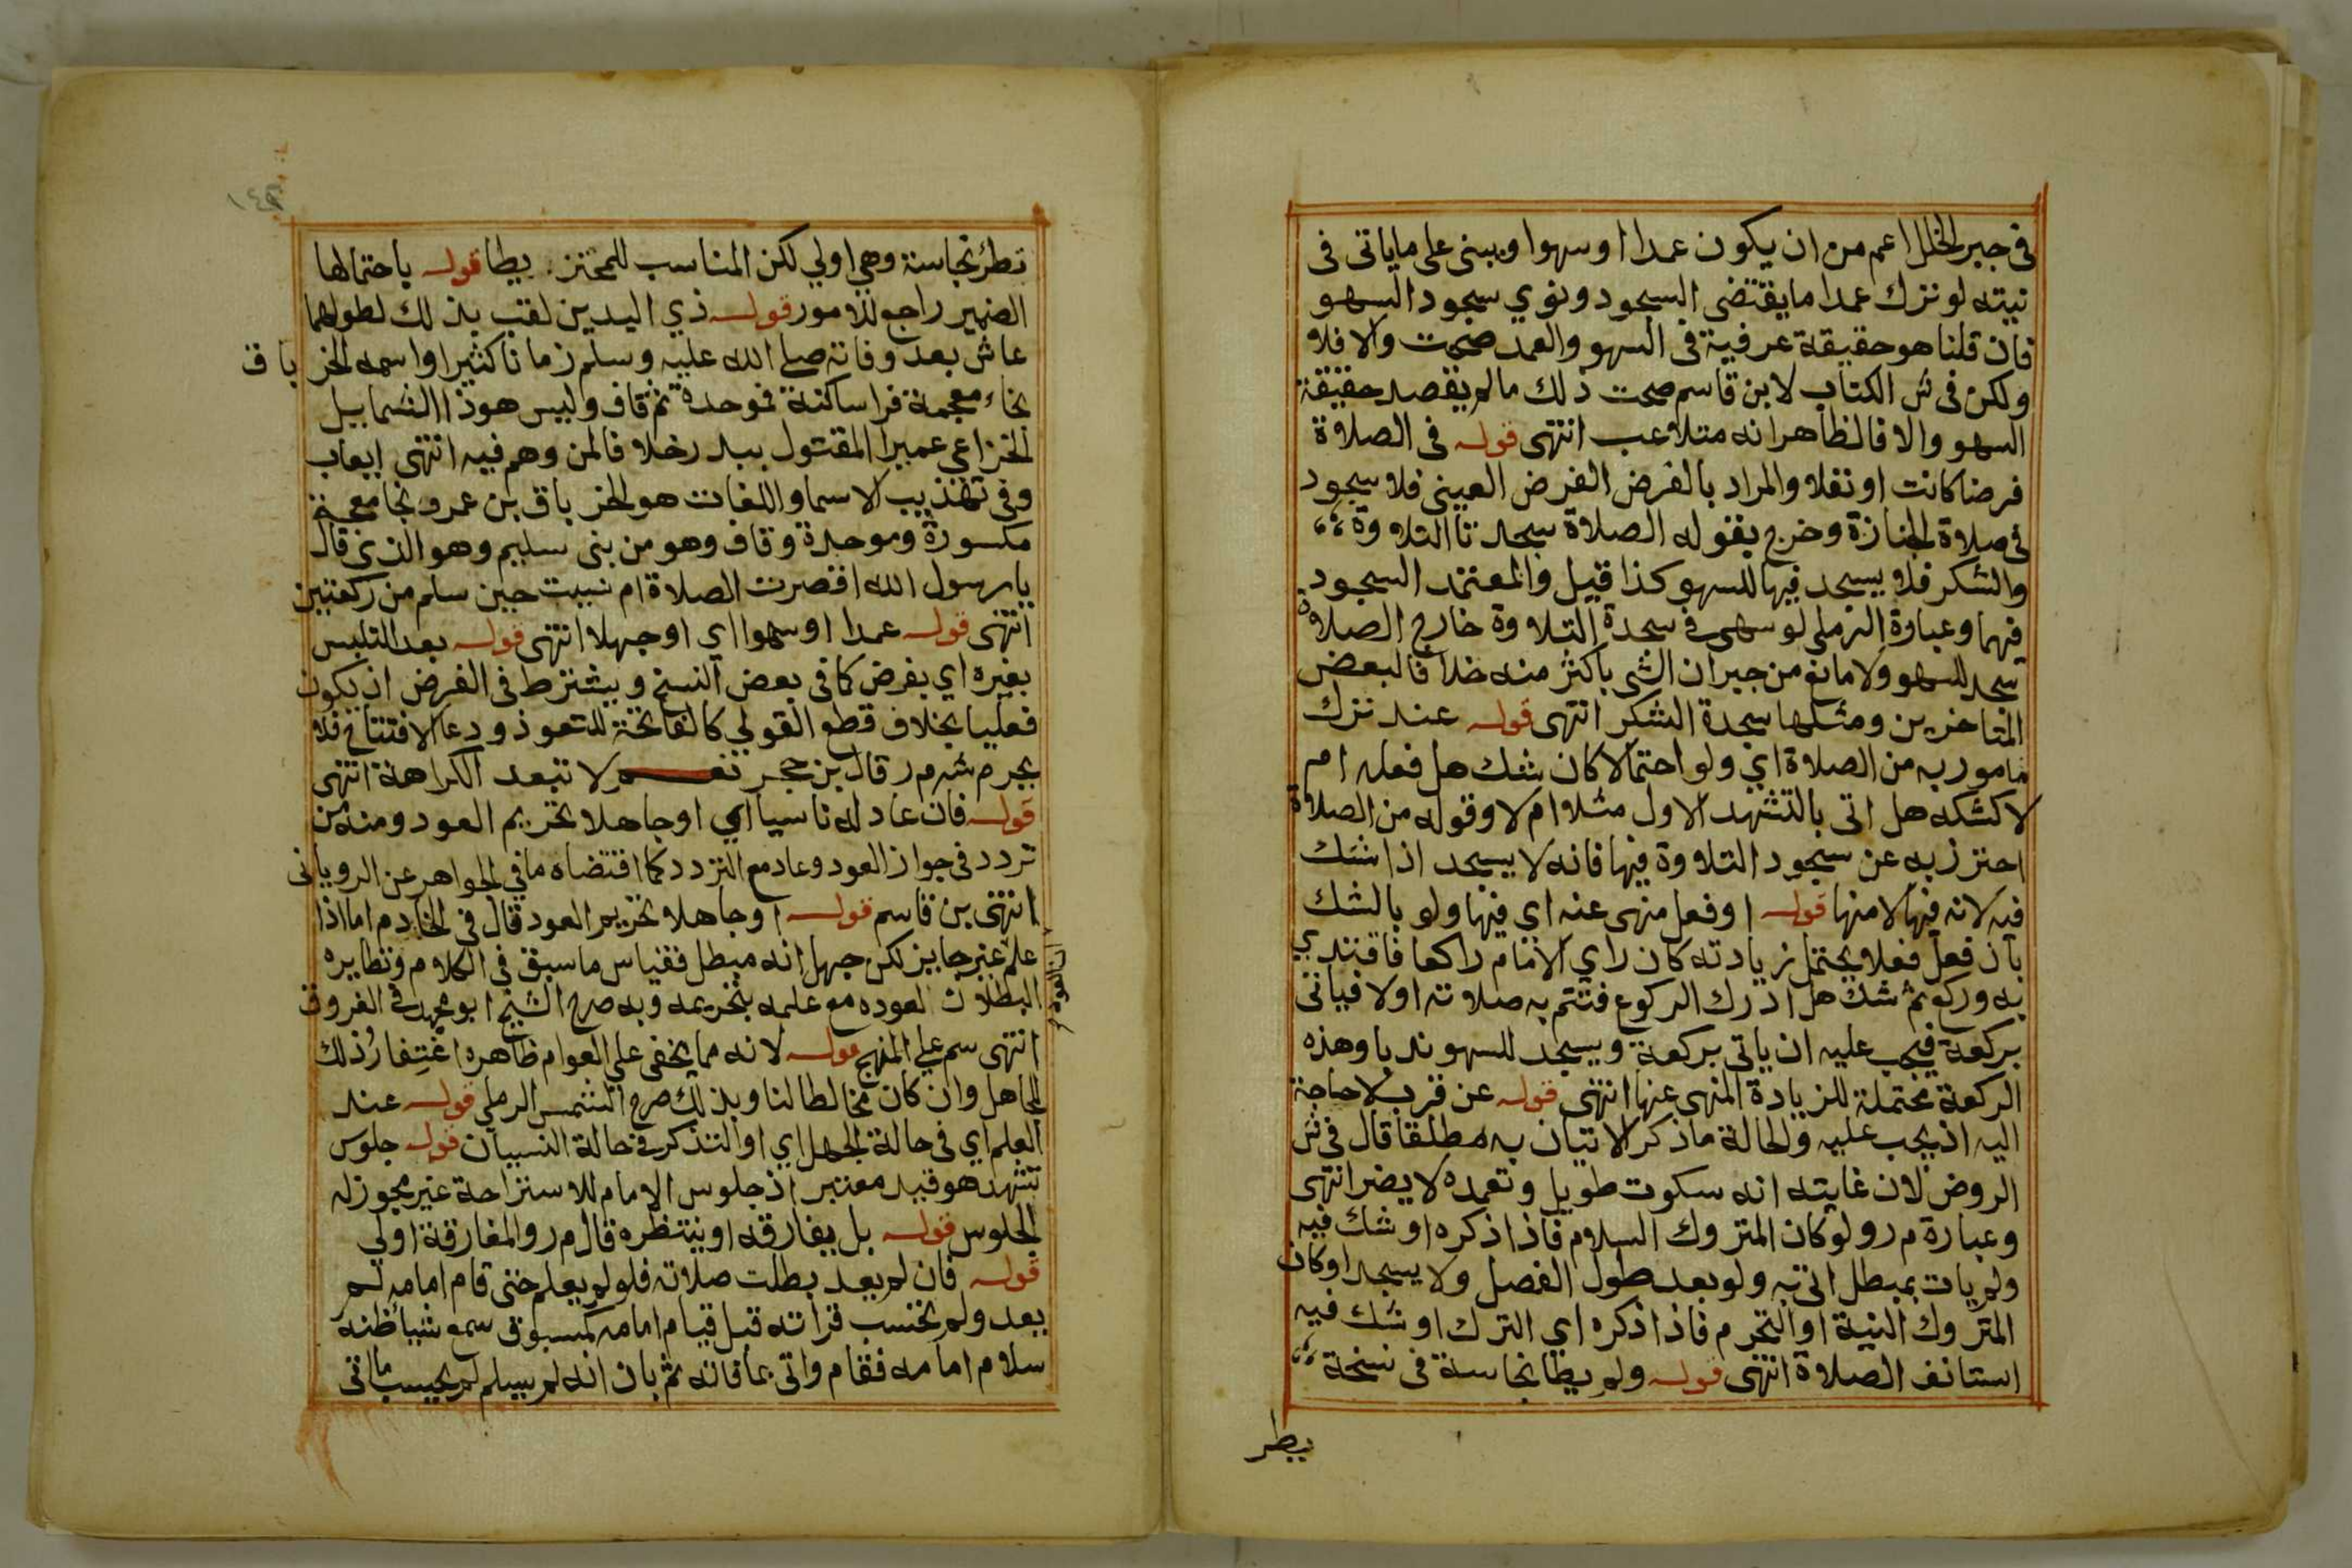 فى جبر الخلل اعم من ان يكون عمدا اوسهوا ويبنى على ماياتى فى
نيته لو ترك عمدا مايقتضى السجود ونوي سجود السهو
فان قلنا هو حقيقة عرفية فى السهو والعمد صحت والا فلا
ولكن فى ش الكتاب لابن قاسم صحت ذلك مالم يقصد حقيقة
السهو والا فالظاهر انه متلاعب انتهى قوله فى الصلاة
فرضا كانت اونفلا والمراد بالفرض الفرض العينى فلا سجود
فى صلاة الجنازة وخرج بقوله الصلاة سجدتا التلاوة
والشكر فلا يسجد فيها للسهو كذا قيل والمعتمد السجود
فيهما وعبارة الرملى لوسهى فى سجدة التلاوة خارج الصلاة
سجد للسهو ولا مانع من جبران الشى باكثر منه خلافا لبعض
المتاخرين ومثلها سجدة الشكر انتهى قوله عند ترك
مامور به من الصلاة اي ولو احتمالا كان شك هل فعله ام
لا كشكه هل اتى بالتشهد الاول مثلا ام لا وقوله من الصلاة
احترز به عن سجود التلاوة فيها فانه لا يسجد اذا شك
فيه لانه فيها لامنها قوله اوفعل منهى عنه اي فيها ولو بالشك
بان فعل فعلا يحتمل زيادته كان راي الامام راكعا فاقتدي
به وركع ثم شك هل ادرك الركوع فتتم به صلاته اولا فياتى
بركعة فيجب عليه ان ياتى بركعة ويسجد للسهو ندبا وهذه
الركعة محتملة للزيادة المنهى عنها انتهى قوله عن قرب لاحاجة
اليه اذ يجب عليه والحالة ماذكر الاتيان به مطلقا قال فى ش
الروض لان غايته انه سكوت طويل وتعمده لايضر انتهى
وعبارة م ر ولو كان المتروك السلام فاذا ذكره اوشك فيه
ولم يات بمبطل اتى به ولو بعد طول الفصل ولا يسجد اوكان
المتروك النية او التحرم فاذا ذكره اي الترك اوشك فيه
استانف الصلاة انتهى قوله ولم يطا نجاسة فى نسخة
يطر
١٤٣
تطر نجاسة وهي اولي لكن المناسب للمحترز يطا قوله باحتمالها
الضمير راجع للامور قوله ذي اليدين لقب بذلك لطولهما
عاش بعد وفاته صلى الله عليه وسلم زمانا كثيرا واسمه الخرباق
بخاء معجمة فرا ساكنة فموحدة ثم قاف وليس هو ذا الشماليل
الخزاعي عمير المقتول ببدر خلافا لمن وهم فيه انتهى ايعاب
وفى تهذيب الاسما واللغات هو الخرباق بن عمرو بخا معجمة
مكسورة وموحدة وقاف وهو من بنى سليم وهو الذى قال
يارسول الله اقصرت الصلاة ام نسيت حين سلم من ركعتين
انتهى قوله عمدا اوسهوا اي اوجهلا انتهى قوله بعد التلبس
بغيره اي بفرض كما فى بعض النسخ ويشترط فى الفرض ان يكون
فعليا بخلاف قطع القولي كالفاتحة للتعوذ ودعا الافتتاح فلا
يحرم ش م ر قال بن حجر نعم لا تبعد الكراهة انتهى
قوله فان عاد له ناسيا اي اوجاهلا تحريم العود ومنه من
تردد فى جواز العود وعاد مع التردد كما اقتضاه مافي الجواهر عن الرويانى
انتهى بن قاسم قوله اوجاهلا تحريم العود قال فى الخادم اما اذا
علم غير جايز لكن جهل انه مبطل فقياس ماسبق فى الكلام ونظايره
البطلان لعوده مع علمه بتحريمه وبه صرح الشيخ ابو محمد فى الفروق
ان العود
انتهى سم علي المنهج قوله لانه مما يخفى علي العوام ظاهره اغتفار ذلك
للجاهل وان كان مخالطا لنا وبذلك صرح الشمس الرملي قوله عند
العلم اي فى حالة الجهل اي او التذكر فى حالة النسيان قوله جلوس
تشهد هو قيد معتبر اذ جلوس الامام للاستراحة غير مجوز له
الجلوس قوله بل يفارقه اوينتظره قال م ر والمفارقة اولي
قوله فان لم يعد بطلت صلاته فلو لم يعلم حتى قام امامه لم
يعد ولم تحتسب قراته قبل قيام امامه كمسبوق سمع شيأ ظنه
سلام امامه فقام واتى بما فاته ثم بان انه لم يسلم لم يحسب مااتى